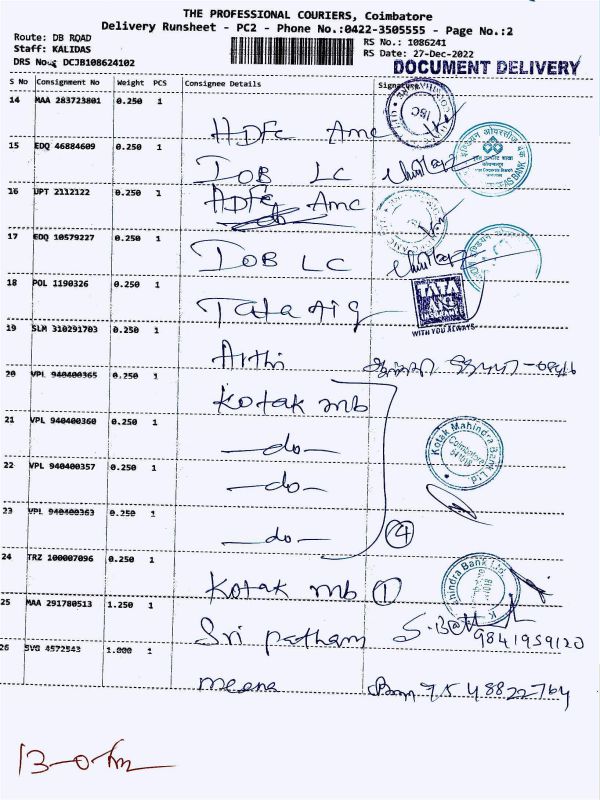 THE PROFESSIONAL COURIERS, Coimbatore
Delivery Runsheet - PC2 - Phone No.:0422-3505555 - Page No.:2
Route: DB ROAD
RS No.: 1086241
Staff: KALIDAS
RS Date: 27-Dec-2022
DRS No.: DCJB108624102
DOCUMENT DELIVERY
S No Consignment No Weight PCS Consignee Details Signature
14 MAA 283723801 0.250 1
HDFC Amc
IBC
15 EDQ 46884609 0.250 1
IOB LC
16 UPT 2112122 0.250 1
HDFC Amc
17 EDQ 10579227 0.250 1
IOB LC
18 POL 1190326 0.250 1
Tata Aig
TATA AIG
WITH YOU ALWAYS
19 SLM 310291703 0.250 1
Arthi
20 VPL 940400365 0.250 1
Kotak mb
21 VPL 940400360 0.250 1
-do-
Kotak Mahindra Bank Ltd
Coimbatore
641018
22 VPL 940400357 0.250 1
-do-
23 VPL 940400363 0.250 1
-do- 4
24 TRZ 100007096 0.250 1
Kotak mb 1
25 MAA 291780513 1.250 1
Sri Patham
9841959120
26 SVG 4572543 1.000 1
meena 9548822764